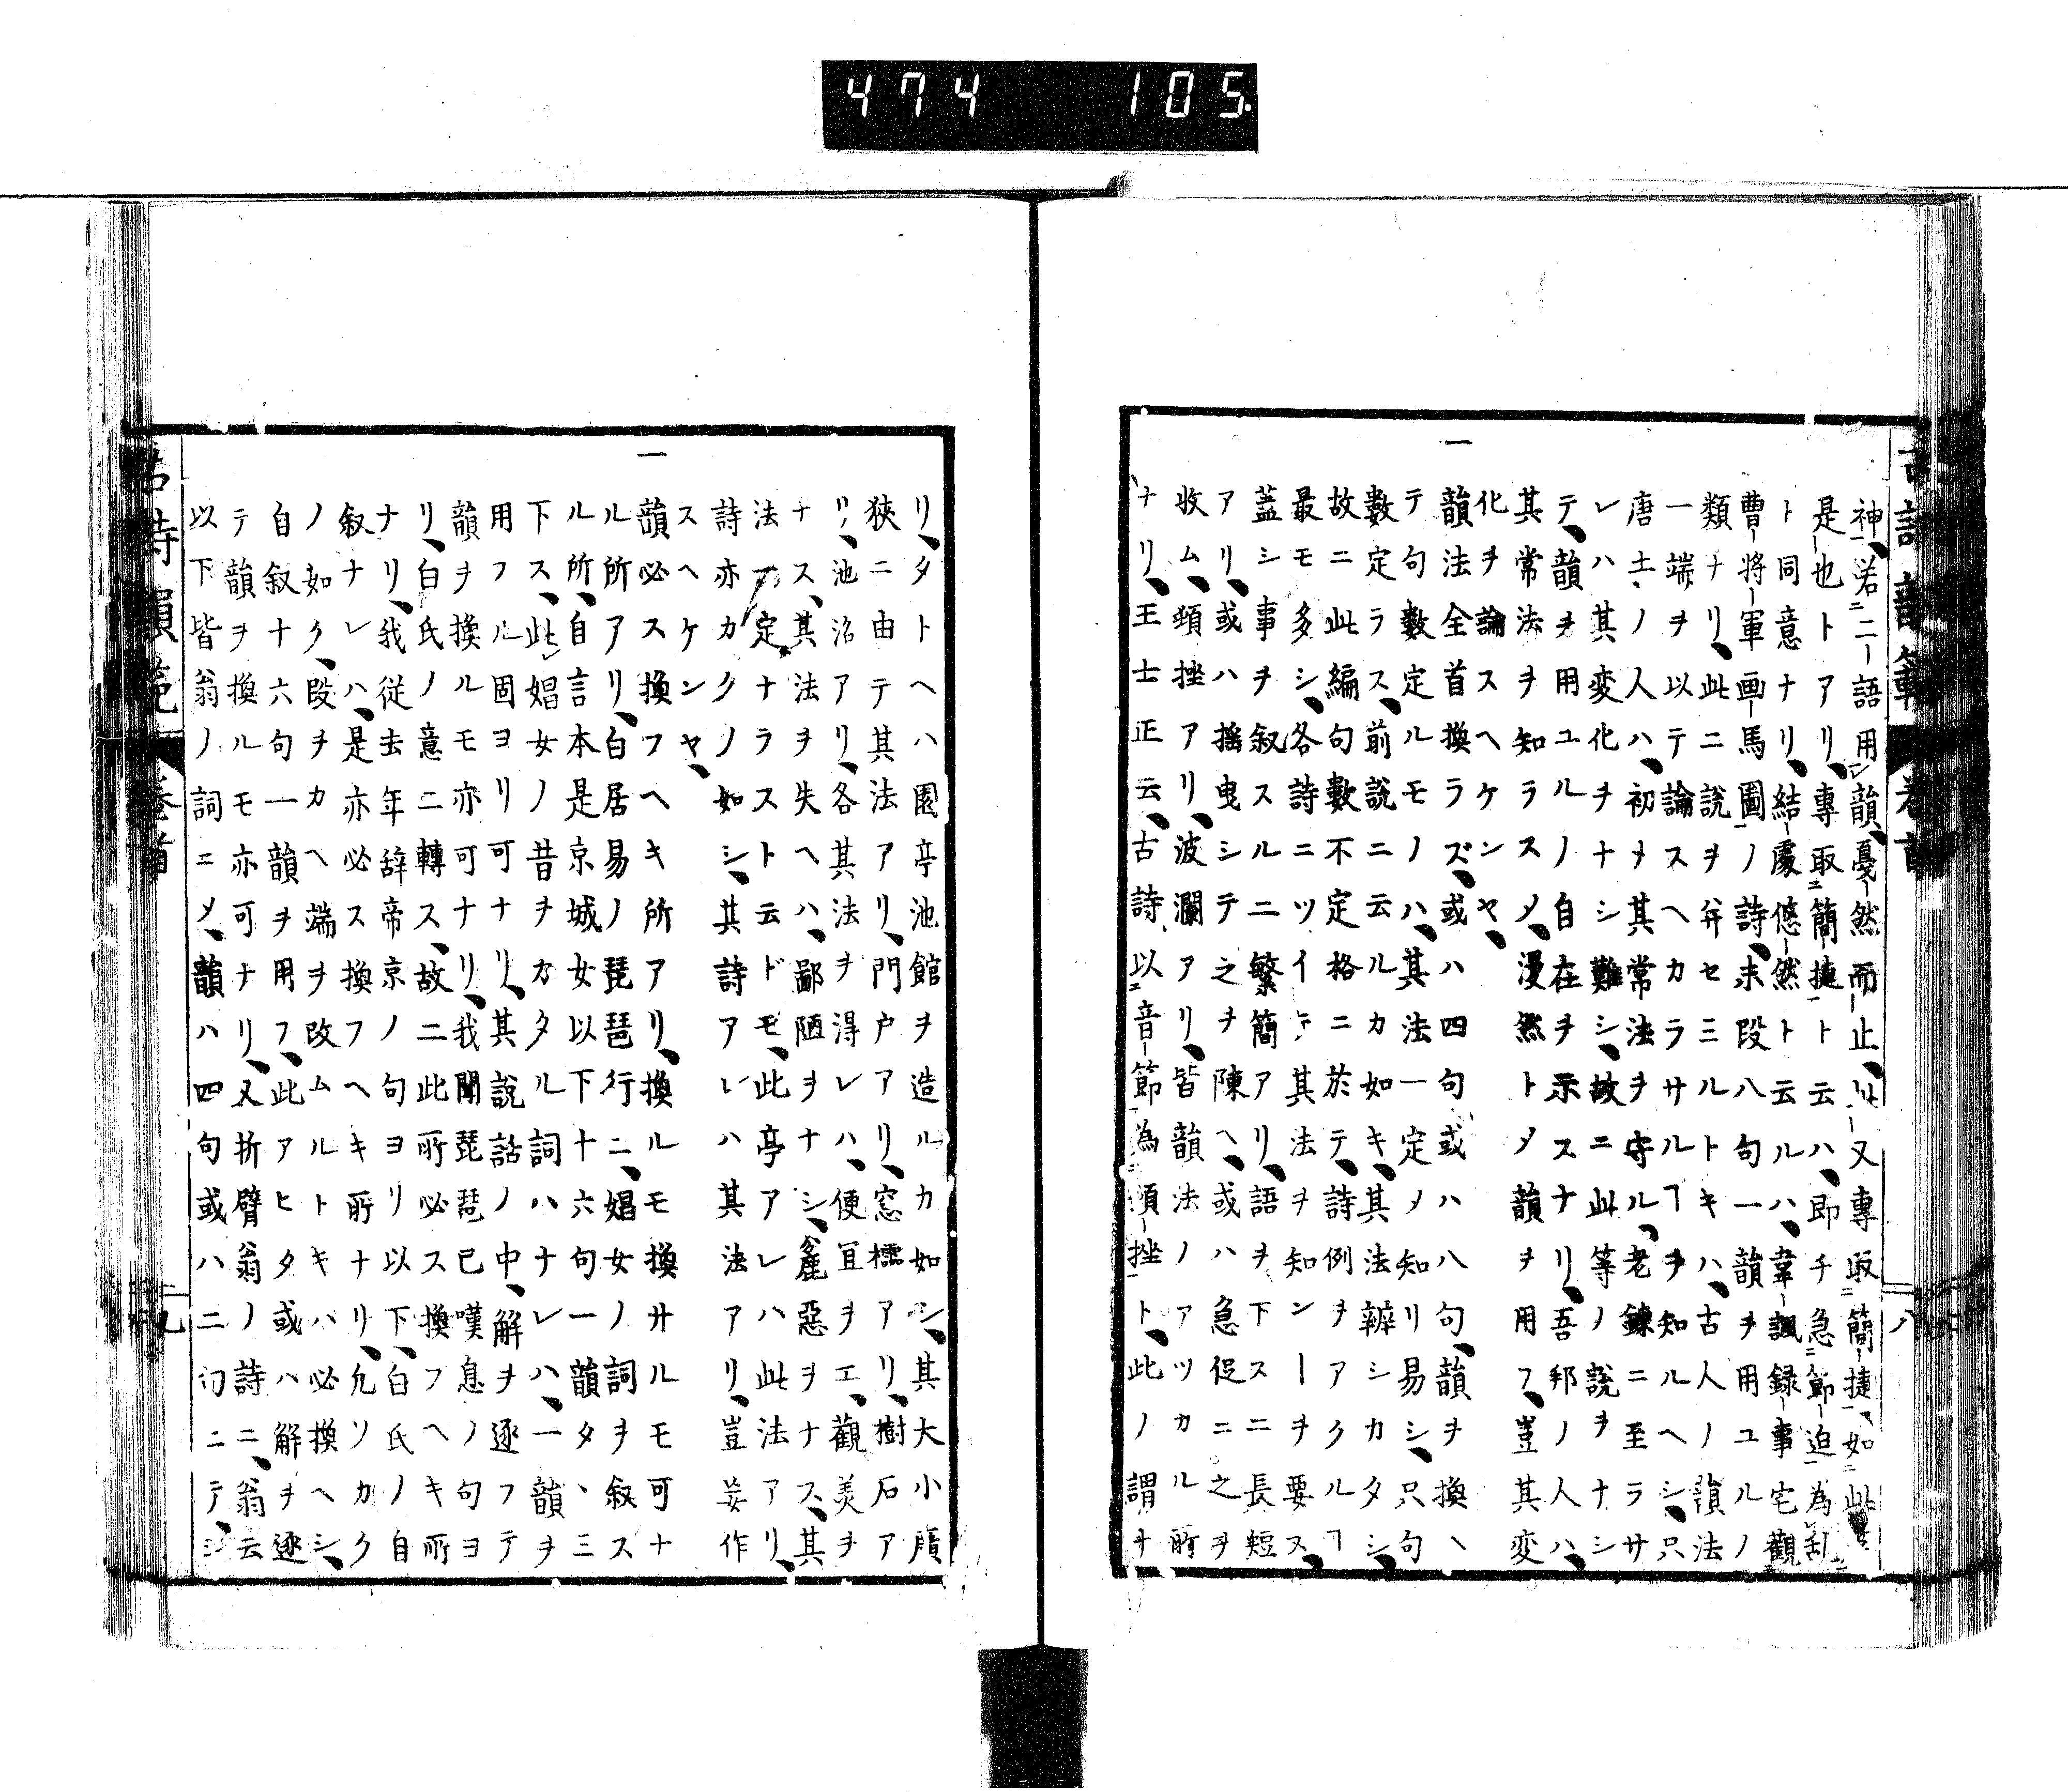 474 105
古詩韻範 卷首 八
神、若二語用韻、戞然而止、此又專取簡捷、如此
是也トアリ、專取簡捷ト云ハ、即チ急節迫為乱
ト同意ナリ、結處悠然ト云ルハ、韋諷録事宅觀
曹將軍画馬圖ノ詩、末段八句一韻ヲ用ユルノ
類ナリ、此ニ説ヲ并セ三ルトキハ、古人ノ韻法
一端ヲ以テ論スヘカラサルヿヲ知ルヘシ、只
唐土ノ人ハ、初メ其常法ヲ守ル、老錬ニ至ラサ
レハ其変化ヲナシ難シ、故ニ此等ノ説ヲナシ
テ、韻ヲ用ユルノ自在ヲ示スナリ、吾邦ノ人ハ、
其常法ヲ知ラスメ、漫然トメ韻ヲ用フ、豈其変
化ヲ論スヘケンヤ、
一
韻法全首換ラズ、或ハ四句或ハ八句、韻ヲ換ヘ
テ句數定ルモノハ、其法一定ノ知リ易シ、只句
數定ラス、前説ニ云ルカ如キ、其法辨シカタシ、
故ニ此編句數不定格ニ於テ、詩例ヲアクルヿ
最モ多シ、各詩ニツイテ其法ヲ知ンーヲ要ス、
蓋シ事ヲ叙スルニ繁簡アリ、語ヲ下スニ長短
アリ、或ハ揺曳シテ之ヲ陳ヘ、或ハ急促ニ之ヲ
收ム、頓挫アリ、波瀾アリ、皆韻法ノアツカル所
ナリ、王士正云、古詩以音節為頓挫ト、此ノ謂ナ
リ、タトヘハ園亭池館ヲ造ルカ如シ、其大小廣
狹ニ由テ其法アリ、門戸アリ、窓櫺アリ、樹石ア
リ、池沼アリ、各其法ヲ得レハ、便宜ヲエ、觀美ヲ
ナス、其法ヲ失ヘハ、鄙陋ヲナシ、麁惡ヲナス、其
法一定ナラスト云ドモ、此亭アレハ此法アリ、
詩亦カクノ如シ、其詩アレハ其法アリ、豈妄作
スヘケンヤ、
一
韻必ス換フヘキ所アリ、換ルモ換サルモ可ナ
ル所アリ、白居易ノ琵琶行ニ、娼女ノ詞ヲ叙ス
ル所、自言本是京城女以下十六句一韻タヽ三
下ス、此娼女ノ昔ヲカタル詞ハナレハ、一韻ヲ
用フル固ヨリ可ナリ、其説話ノ中、解ヲ逐フテ
韻ヲ換ルモ亦可ナリ、我聞琵琶已嘆息ノ句ヨ
リ、白氏ノ意ニ轉ス、故ニ此所必ス換フヘキ所
ナリ、我従去年辞帝京ノ句ヨリ以下、白氏ノ自
叙ナレハ、是亦必ス換フヘキ所ナリ、凢ソカク
ノ如ク、段ヲカヘ端ヲ改ムルトキハ必換ヘシ、
自叙十六句一韻ヲ用フ、此アヒタ或ハ解ヲ逐
テ韻ヲ換ルモ亦可ナリ、又折臂翁ノ詩ニ、翁云
以下皆翁ノ詞ニメ、韻ハ四句或ハ二句ニテ、シ
古詩韻範 卷首 九